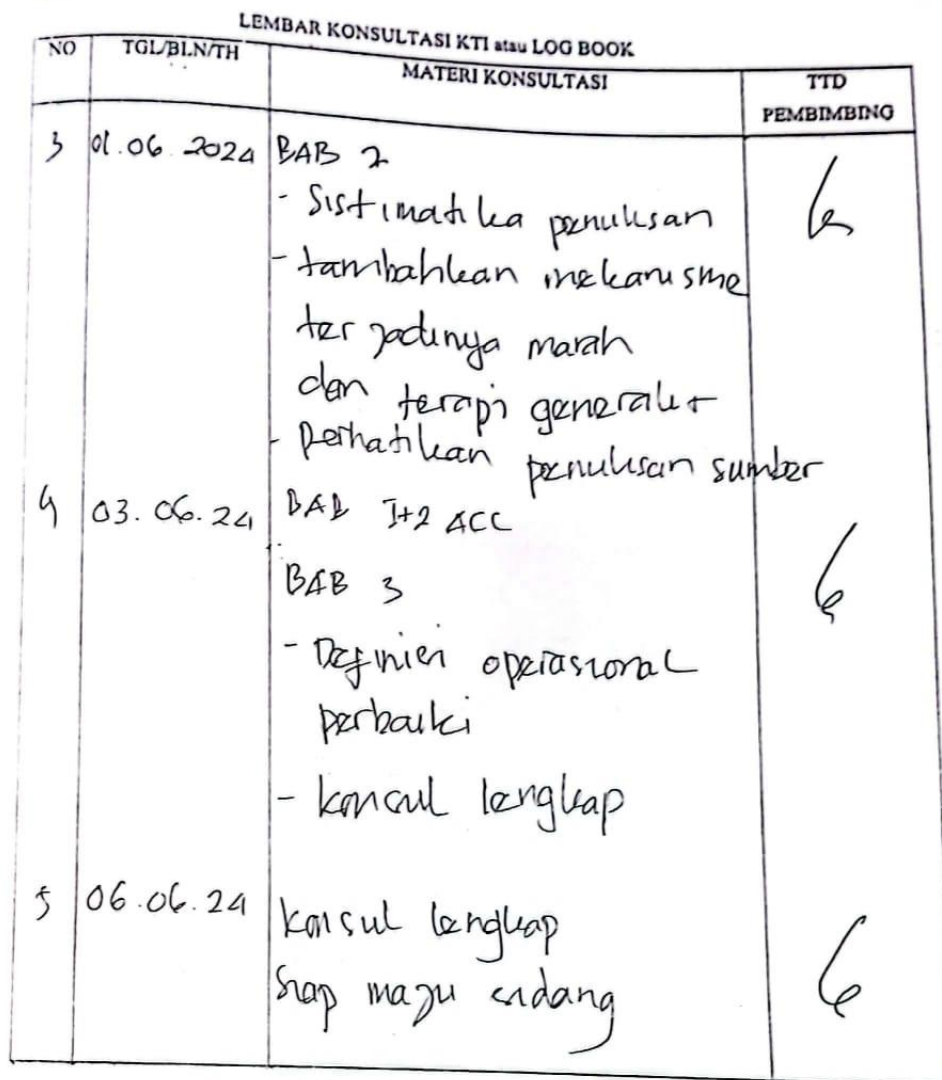 LEMBAR KONSULTASI KTI atau LOG BOOK
NO TGL/BLN/TH MATERI KONSULTASI TTD PEMBIMBING
3 01.06.2024 BAB 2
- Sistimatika penulisan
- tambahkan mekanisme
terjadinya marah
dan terapi generalist
- Perhatikan penulisan sumber
4 03.06.24 BAB I+2 ACC
BAB 3
- Definisi operasional
perbaiki
- konsul lengkap
5 06.06.24 konsul lengkap
Siap maju sidang